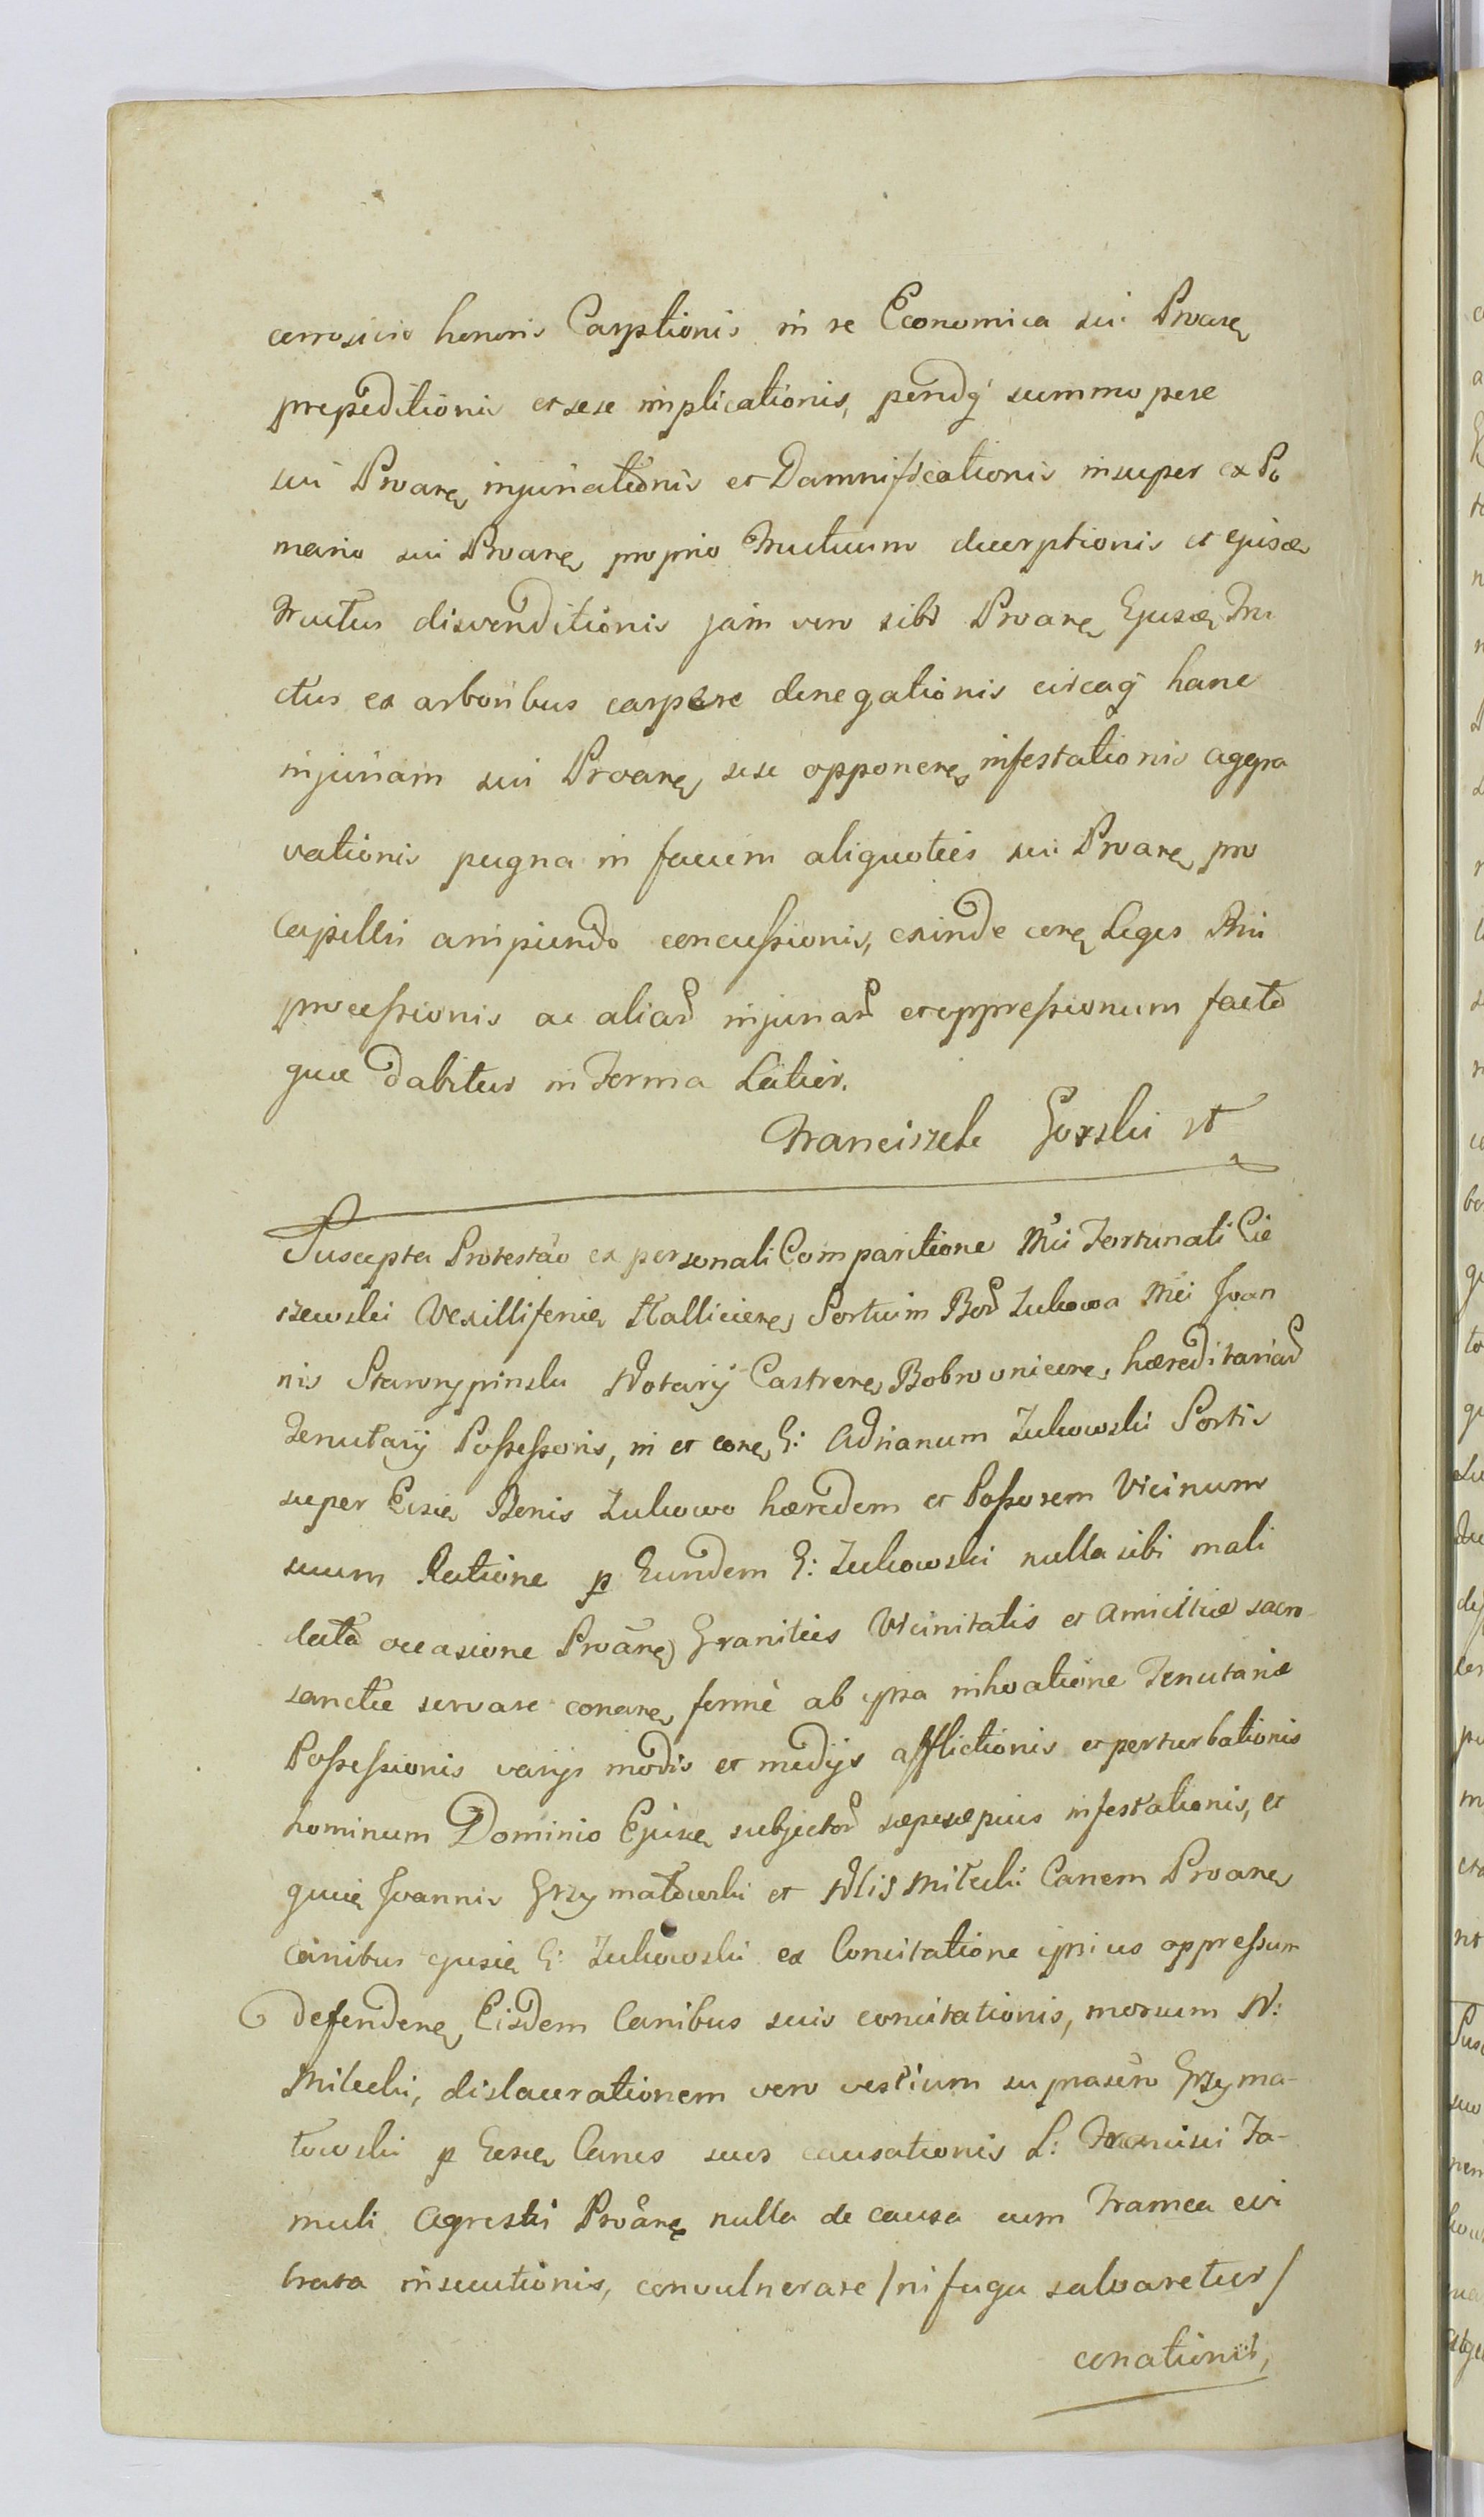 corrosivis honoris Carptionis in re Economica sui Proarę
prepeditionis et sese implicationis, pendq́ summopere
sui Proarę injuriationis et Damnificationis insuper ex Po
mario sui Proarę proprio Fructuum decerptionis et ejusdę
Fructus disvenditionis jam vero sibi Proarę Ejusdę Fru
ctus ex arboribus carpere denegationis circaq́ hanc
injuriam sui Proarę sese opponerę infestationis aggra
vationis pugna in faciem aliquoties sui Proarę pro
Capillis arripiendo concussionis, exinde conę Leges Pnii
processionis ac aliar injuriar et oppressionum facto
quæ dabitur in Forma Latior.
Franciszek Gorski
Suscepta Protestao ex personali Comparitione Mci Fortunati Cie
szewski Vexilliferię Halliciens Sortium Bor Żukowa Mci Joan
nis Starorypinski Notarij Castrens Bobrownicens hæreditariar
Tenutarij Possessoris, in et conę G: Adrianum Żukowski Sortis
super Eisdę Bonis Żukowo hæredem et Possorem Vicinum
suum Ratione p Eundem G: Żukowski nulla sibi mali
data occasione Proãnę Granities Vicinitatis et Amicitiæ sacro
sancte servare conanę fermè ab ipsa inhoatione Tenutariæ
Possessionis varijs modis et medijs afflictionis et perturbationis
hominum Dominio Ejusdę subjector sæpesæpius infestationis, et
quidę Joannis Grzymatowski et Nlis Milecki Canem Proanę
Canibus ejusdę G: Żukowski ex Concitatione ipsius oppressum
defendenę Eisdem Canibus suis concitationis, morsum N:
Milecki, dislacerationem vero vestium suprascro Grzyma-
towski p Eosdę Canes suos causationis L: Francisci Fa-
muli Agrestis Proãnę nulla de causa cum Framea evi
brata insecutionis, convulnerare /ni fuga salvaretur/
conationis,